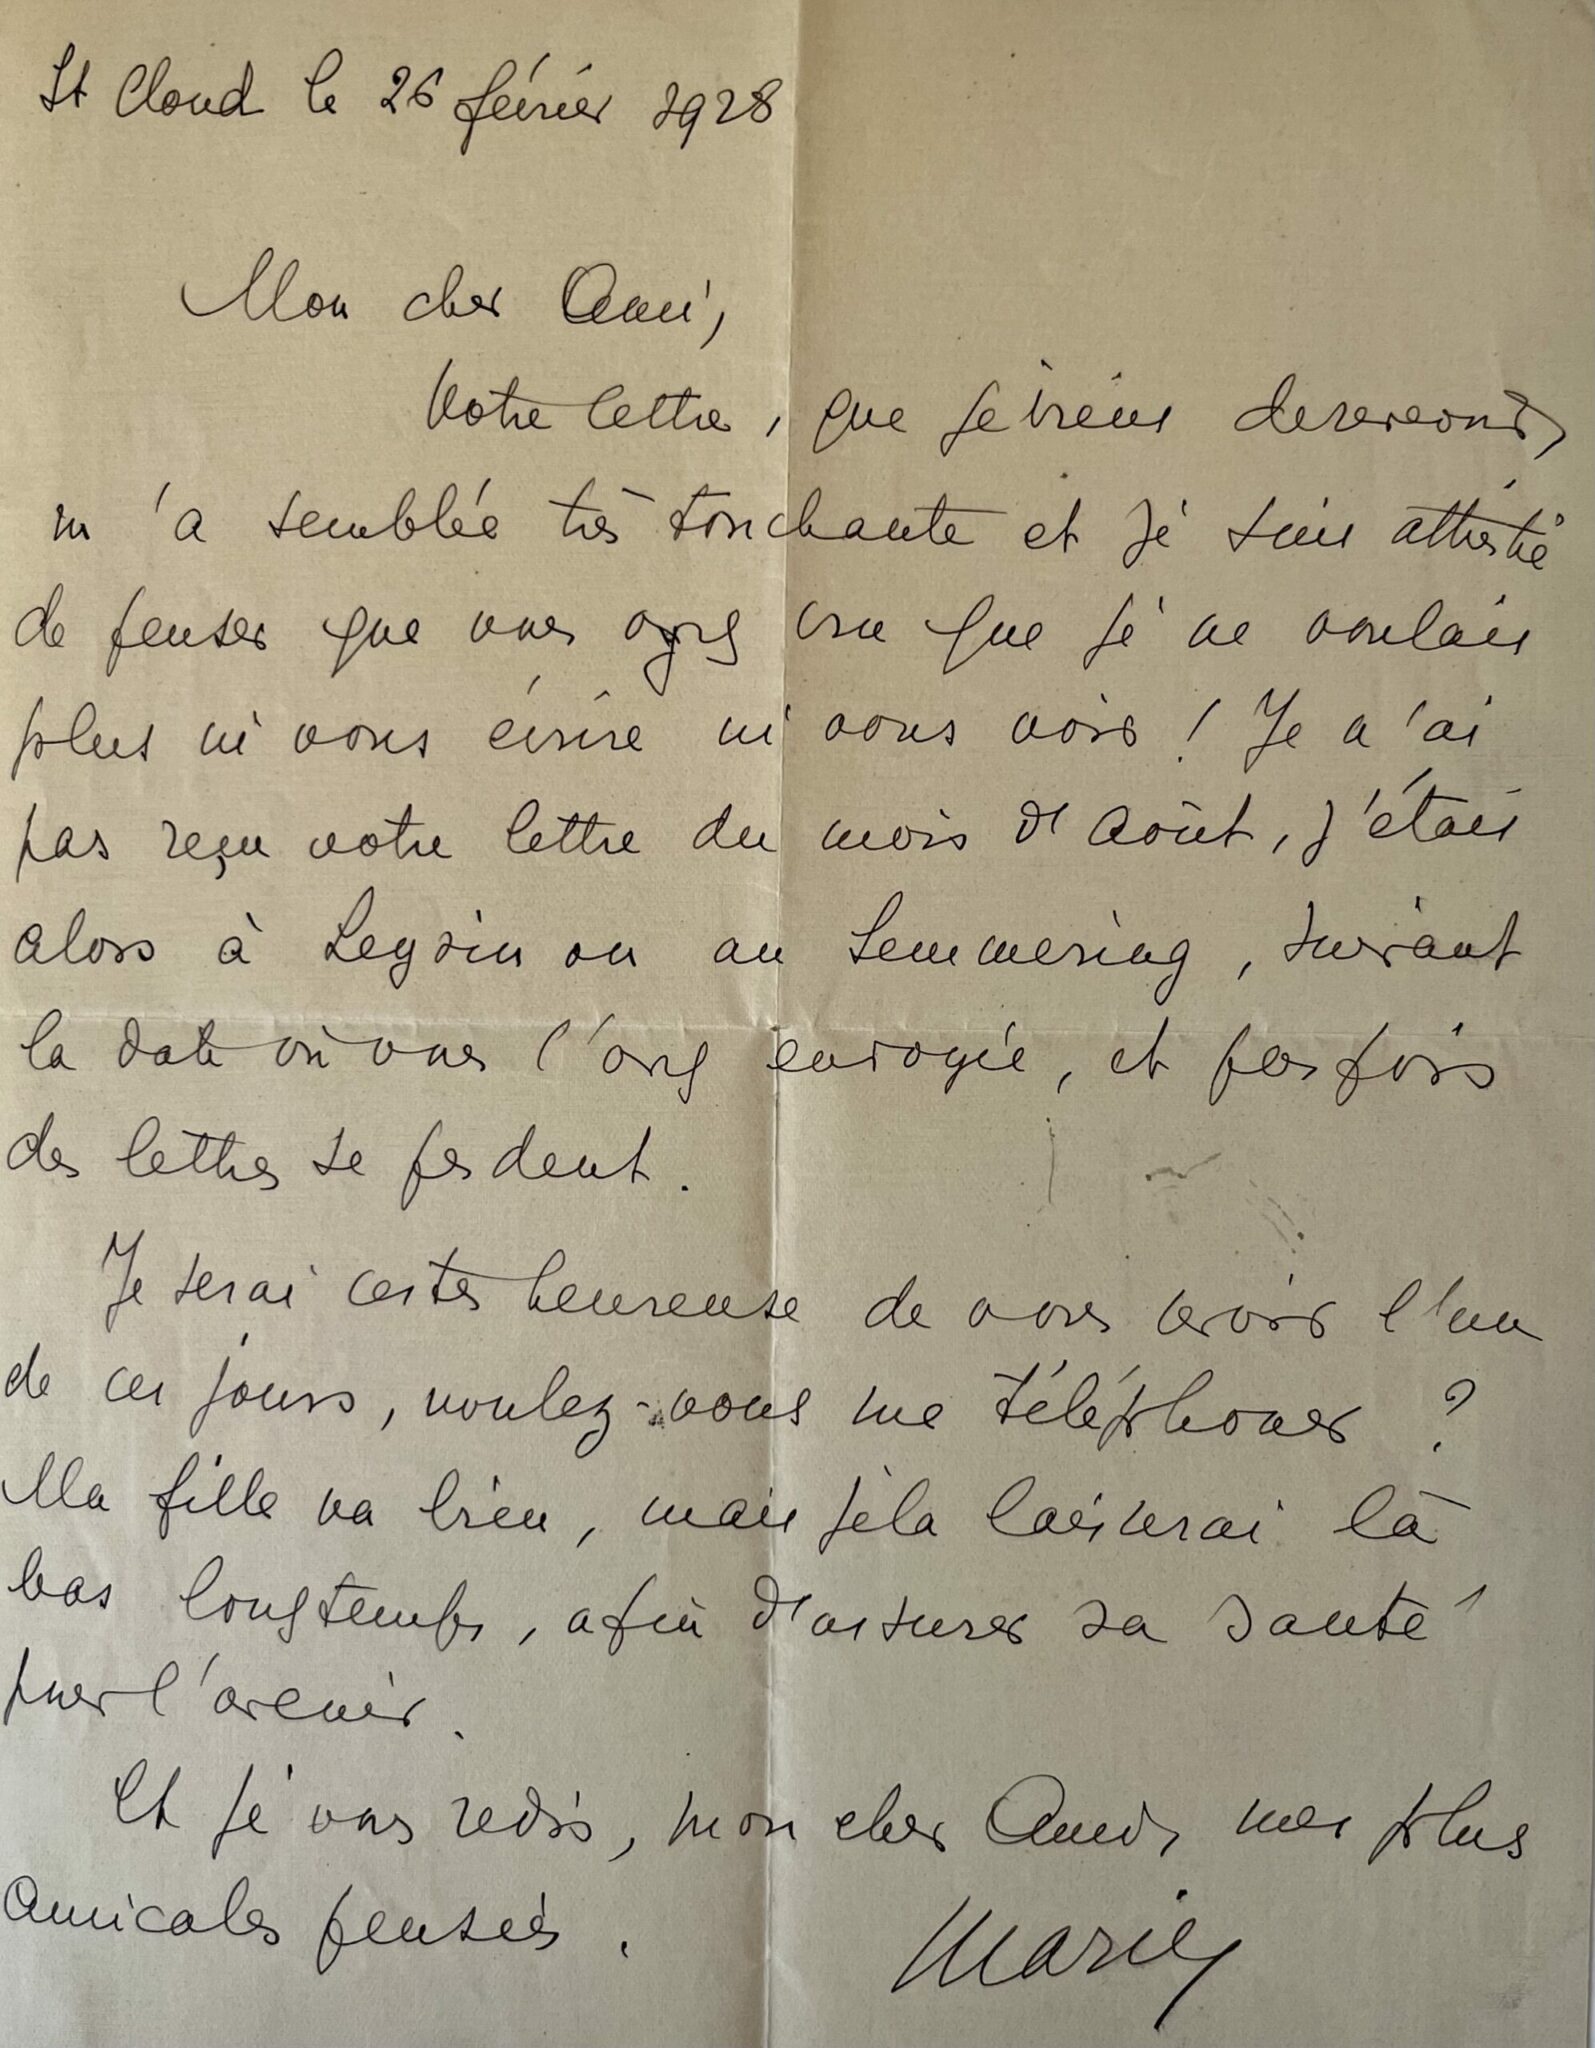 St Cloud le 26 février 1928
Mon cher Ami,
Votre lettre, que je viens de recevoir,
m'a semblée très touchante et je suis attristé
de penser que vous ayez cru que je ne voulais
plus ni vous écrire ni vous voir ! Je n'ai
pas reçu votre lettre du mois d'Août, j'étais
alors à Leysin ou au Semmering, suivant
la date où vous l'avez envoyée, et parfois
des lettres se perdent.
Je serai certes heureuse de vous revoir l'un
de ces jours, voulez-vous me téléphoner ?
Ma fille va bien, mais je la laisserai là
bas longtemps, afin d'assurer sa santé
pour l'avenir.
Et je vous redis, mon cher Ami, mes plus
amicales pensées.